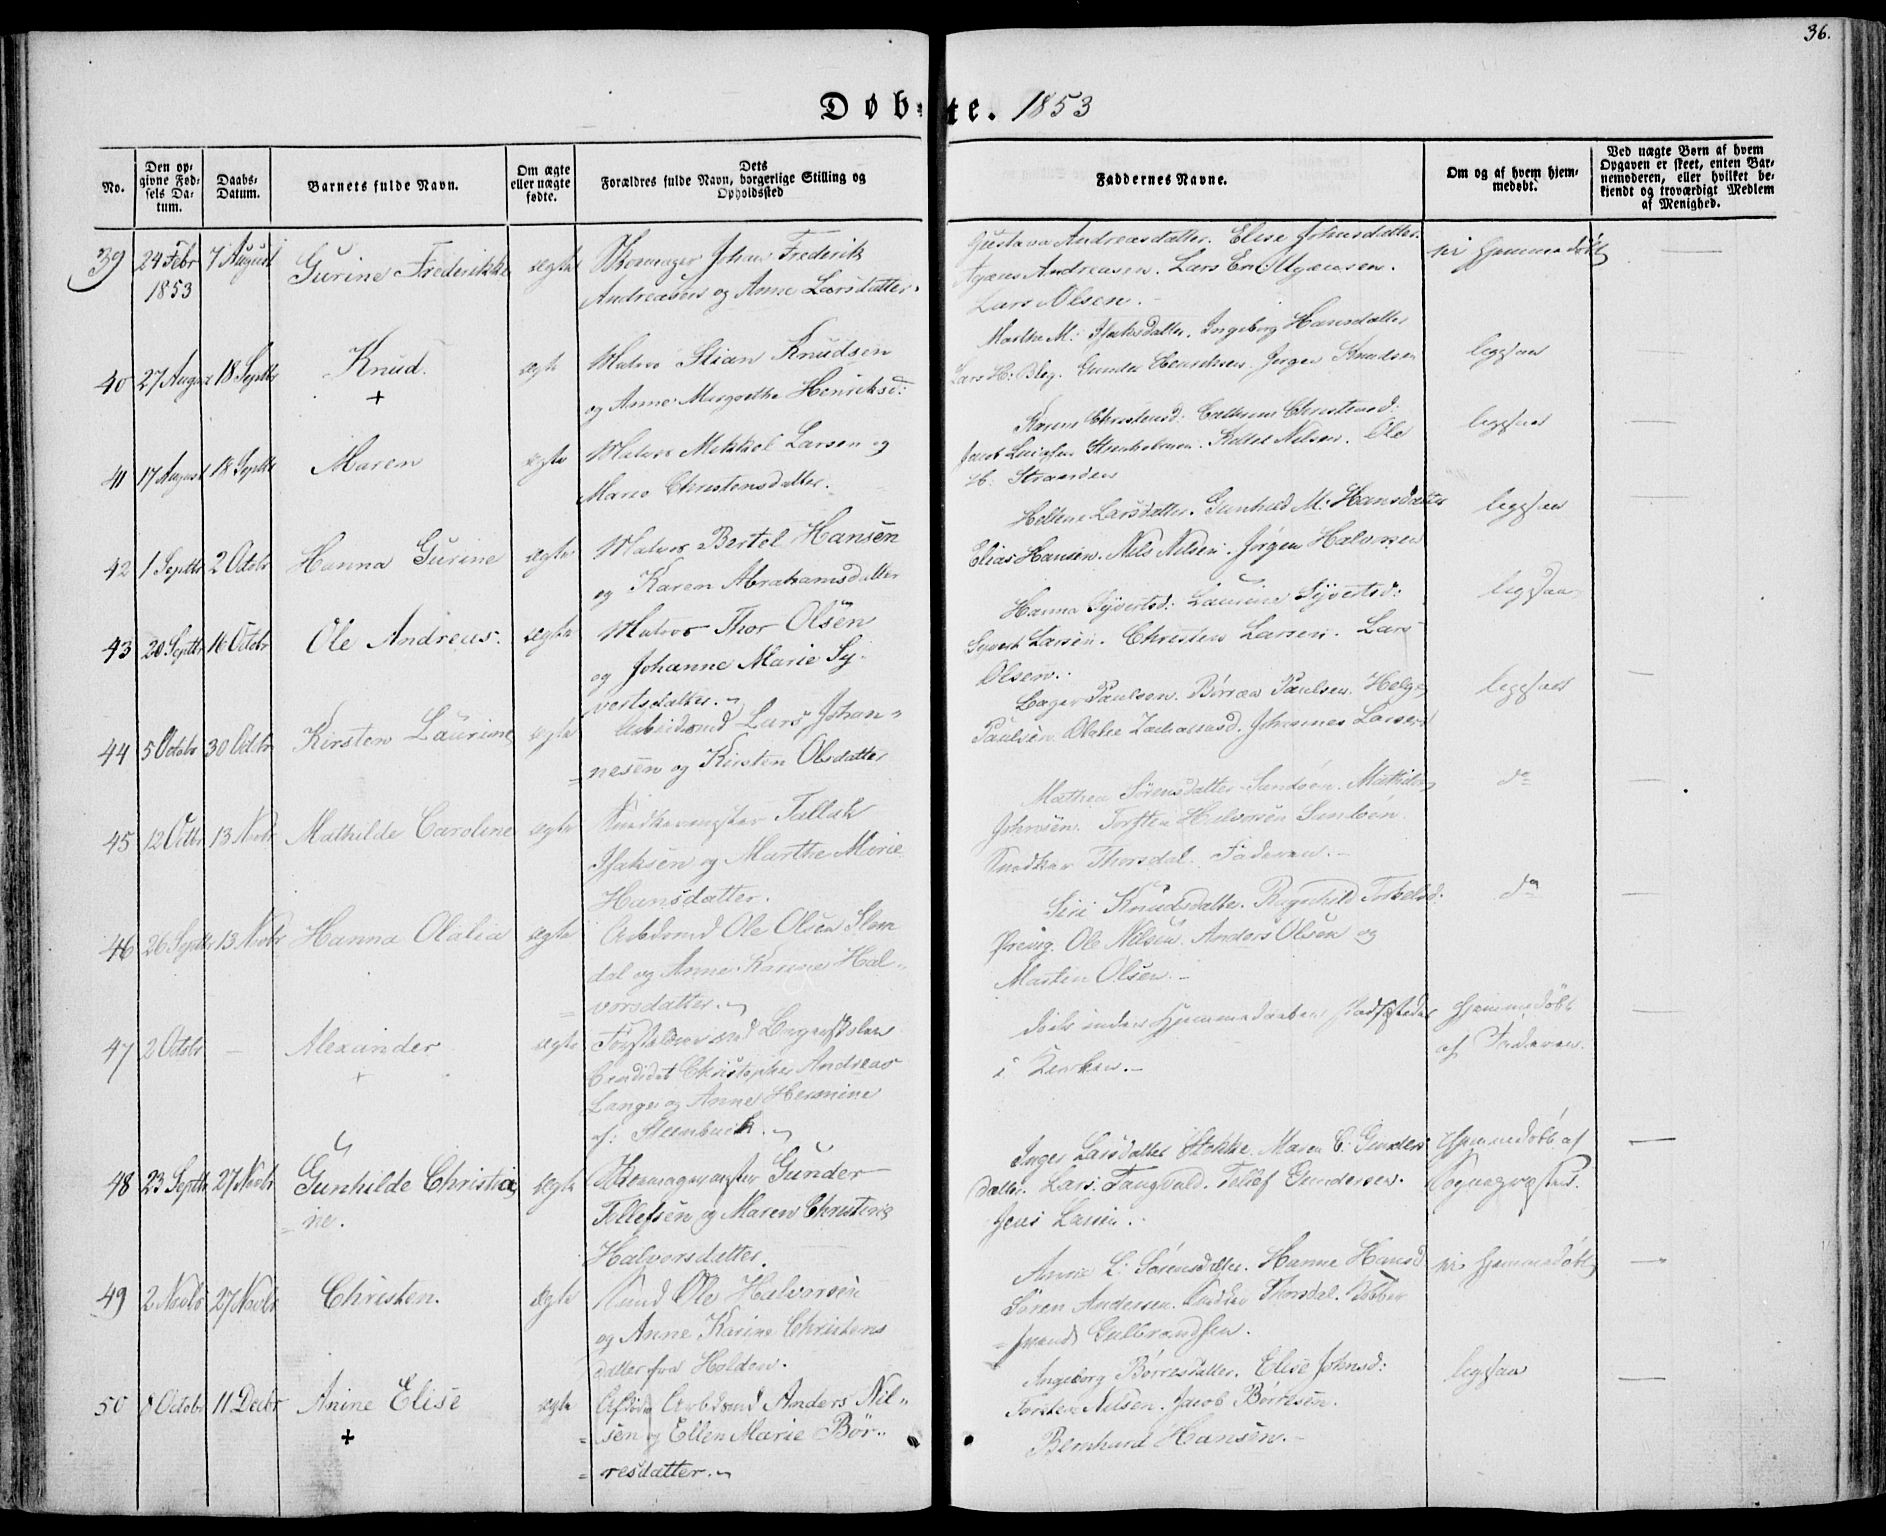 36.
Døbte. 1853
No.
Den opgivne Fødsels Datum.
Daabs-Datum.
Barnets fulde Navn.
Om ægte eller uægte fødte.
Dets Forældres fulde Navn, borgerlige Stilling og Opholdssted
Faddernes Navne.
Om og af hvem hjemmedøbt.
Ved uægte Børn af hvem Opgaven er skeet, enten Barnemoderen, eller hvilket bekjendt og troværdigt Medlem af Menighed.
39 24 Febr 1853 7 August Gurine Frederikke ægte
Skomager Johan Frederik
Andreasen og Anne Larsdatter.
Gustava Andreasdatter. Elise Johnsdatter.
Andreasen. Lars
Lars Olsen.
ei hjemmedøbt
40 27 August 18 Septbr Knud. + ægte
Matros Stian Knudsen
og Anne Margrethe Henriksd:
Marthe M: Isaksdatter. Ingeborg Hansdatter
Lars H: Gunder Henriksen. Jørgen Knudsen
ligesaa
41 17 August 18 Septbr Maren ægte
Matros Mikkel Larsen og
Maren Christensdatter.
Karen Christensd: Cathrine Christensd:
Jacob Kittel Nilsen. Ole
ligesaa
42 1 Septbr 2 Octbr Hanna Gurine ægte
Matros Bertel Hansen
og Karen Abrahamsdatter
Hellene Larsdatter. Gunhild M: Hansdatter
Elias Hansen. Nils Nilsen. Jørgen Halvorsen
ligesaa
43 20 Septbr 16 Octobr Ole Andreas. ægte
Matros Thor Olsen
og Johanne Marie Sy-
vertsdatter.
Hanna Syvertsd: Laurine Syvertsd:
Syvert Larsen. Christen Larsen. Lars
Olsen.
ligesaa
44 5 Octobr 30 Octbr Kirsten Laurine ægte
Arbeidsmd Lars Johan-
nesen og Kirsten Olsdatter
Paulsen. Paulsen. Helge
Paulsen. Zachariasd. Johannes Larsen
ligesaa
45 12 Octbr 13 Novbr Mathilde Caroline ægte
Snedkermester Tallak
Isaksen og Marthe Marie
Hansdatter.
Mathea Sörensdatter Sandöen. Mathilde
Johnsen. Torsten Halvorsen Sandöen
Snedker Thorsdal. Faderen.
do
46 26 Septbr 13 Novbr Hanna Olalia ægte
Arbdsmd Ole Olsen Slem
dal og Anne Karine Hal-
vorsdatter.
Siri Knudsdatter. Ragnhild Torkelsd.
Ørevig. Ole Nilsen. Anders Olsen og
Martin Olsen.
do
47 2 Octbr - Alexander + ægte
Candidat Christopher Andreas
Lange og Anne Hermine
af: Steenbuck.
døde inden Hjemmedaaben stadfæstedes
i Kirken.
Hjemmedøbt
af Faderen.
48 23 Septbr 27 Novbr Gunhilde Christia-
ne. ægte
Skomagermester Gunder
Tollefsen og Maren Christine
Halvorsdatter.
Inger Larsdatter Stokke. Maren C: Gunders
datter. Lars Tangvald. Tollef Gundersen.
Jens Larsen.
Hjemmedøbt af
Sognepræsten.
49 2 Novbr 27 Novbr Christen. ægte
Ole Halvorsen
og Anne Karine Christens
datter fra Holden.
Anne L: Sörensdatter. Hanne Hansd
Sören Andersen. Snedker Thorsdal. Kobber
smed Gulbrandsen.
ei hjemmedøbt
50 8 Octobr 11 Decbr Anine Elise + ægte
Afdøde Arbdsmd Anders Nil-
sen og Ellen Marie Bör-
resdatter.
Ingeborg Börresdatter. Elise Johnsd:
Torsten Nilsen. Jacob Börresen.
Bernhard Hansen.
ligesaa